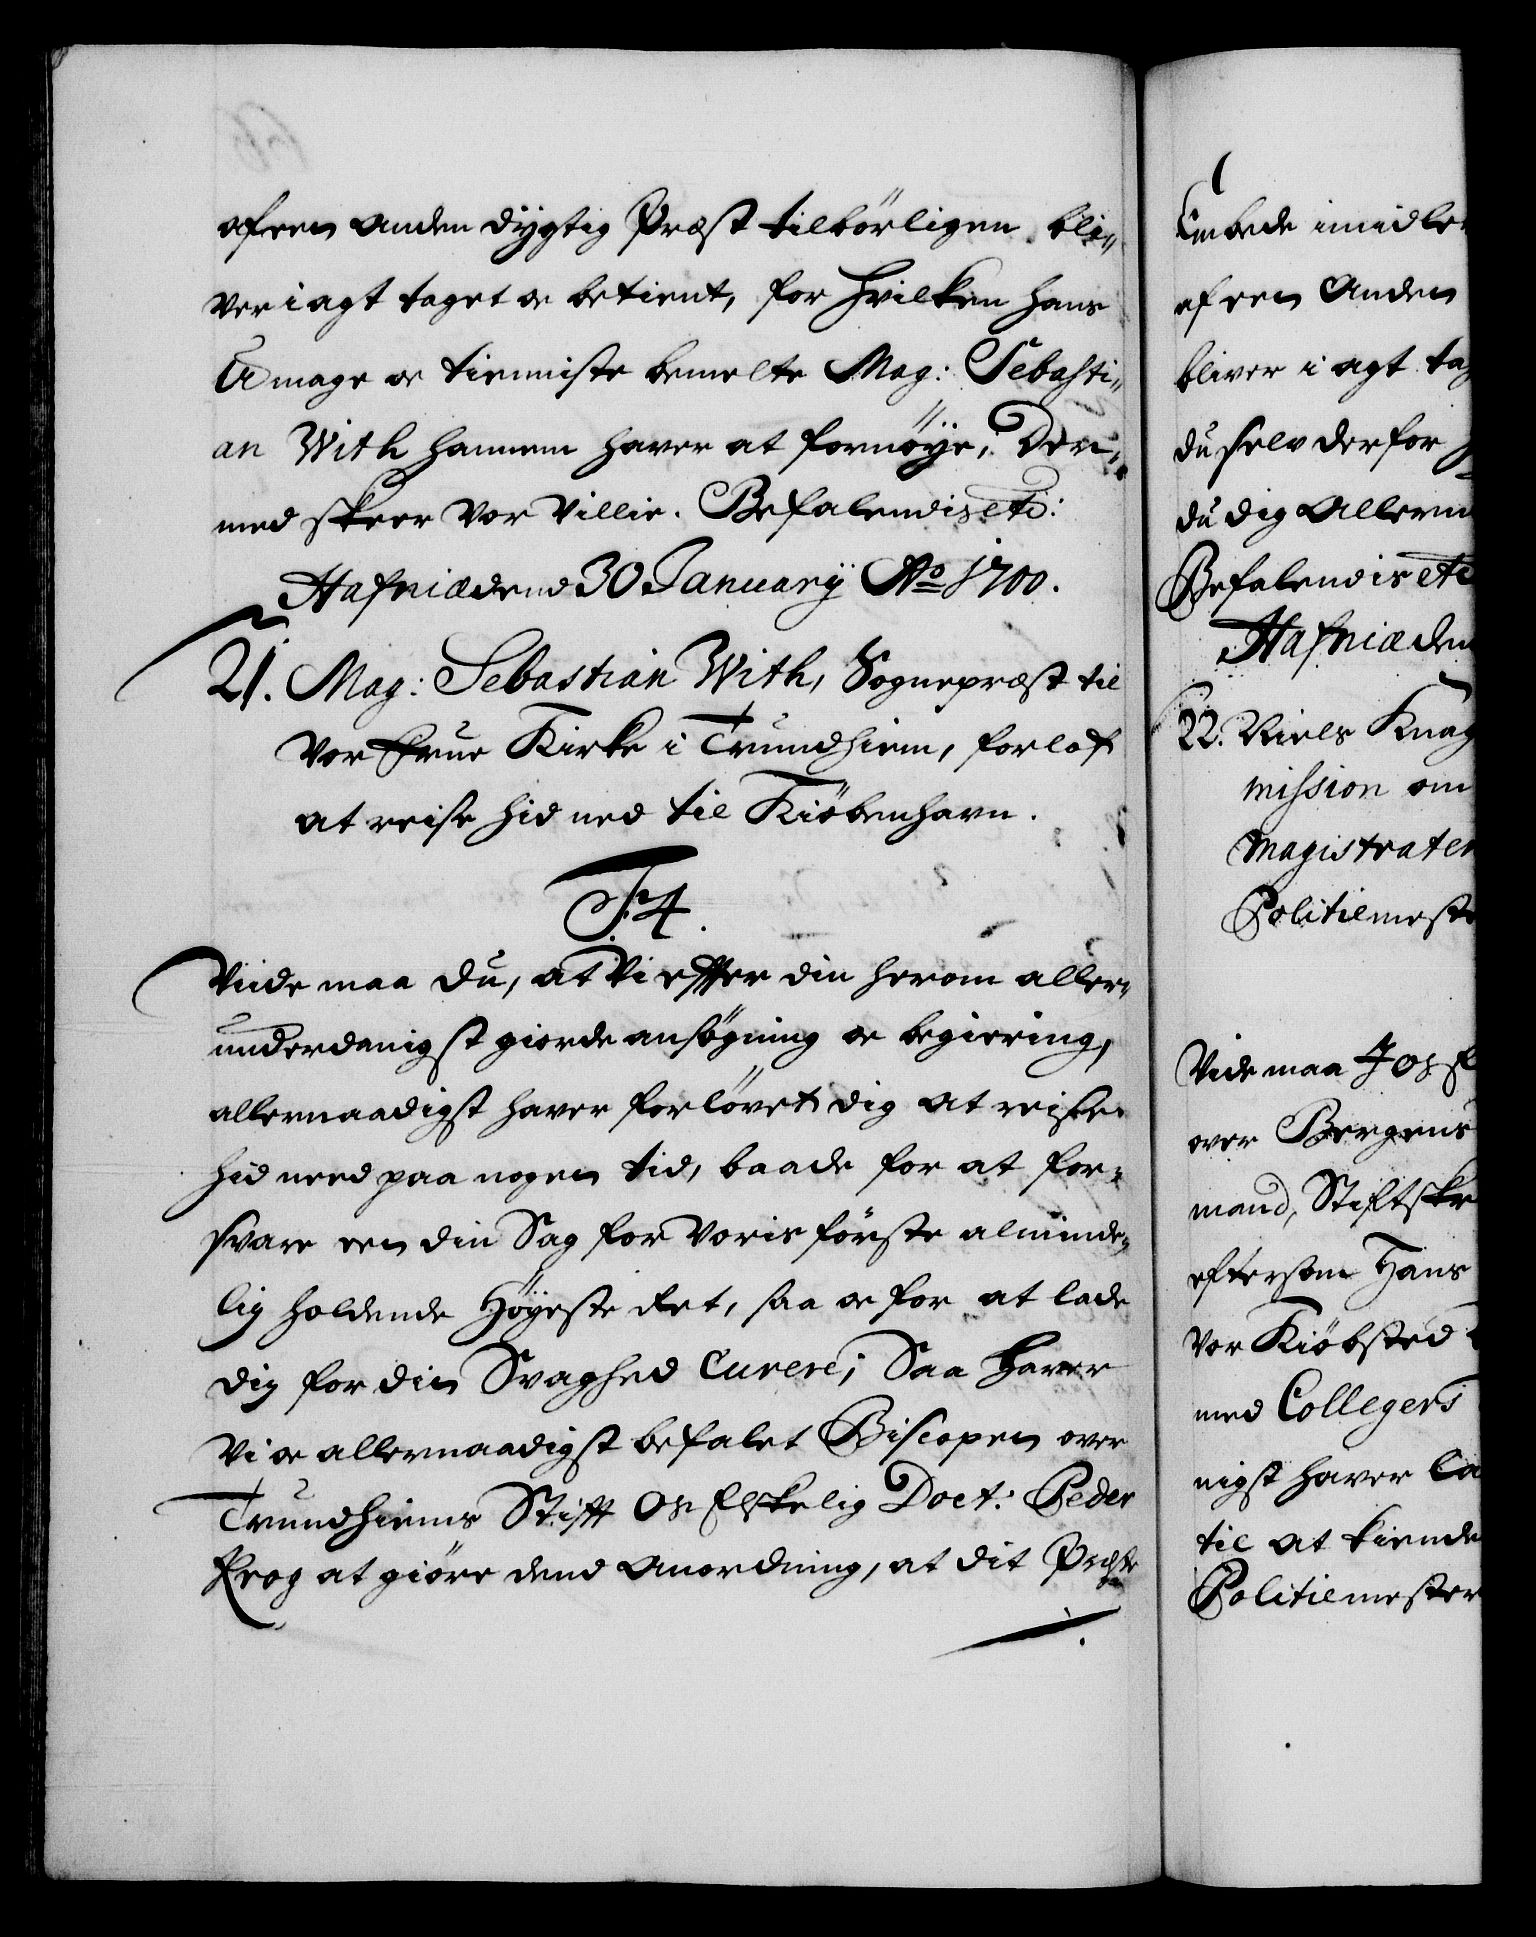 af een anden dygtig Præst tilbörligen bli„
ver i agt taget oc betient, for hvilken hans
Umage oc tienniste bemelte Mag: Sebasti„
an With hannem haver at fornöye, Der„
med skeer Vor Villie. Befalendis etc:
Hafniæ dend 30 January Ao 1700.
21. Mag: Sebastian With, Sognepræst til
Vor Frue Kirke i Trundhiem, forlof
at reise hid ned til Kiöbenhavn.
F. 4.
Viide maa du, at Vi effter din herom aller„
underdanigst giorde ansøgning oc begiering,
allernaadigst haver forlövet dig at reise
hid need paa nogen tid, baade for at for„
svare een din Sag for Voris förste alminde„
lig holdende Höyeste Ret, saa oc for at lade
dig for din Svaghed Curere; Saa haver
Vi oc allernaadigst befalet Biscopen over
Trundhiems Stifft Os Elskelig Doct: Peder
Krog at giöre dend Anordning, at dit Præste
Embede imidler
af een Anden
bliver i agt tag
du selv derfor
du dig Allerun
Befalendis etc
Hafniæ den
22. Niels Knag
mission om
Magistraten
Politiemeste
Vide maa Os El
over Bergens
mand, Stiftskr
eftersom Hans
Vor Kiöbsted
med Collegers
nigst haver la
til at kiende
Politiemester